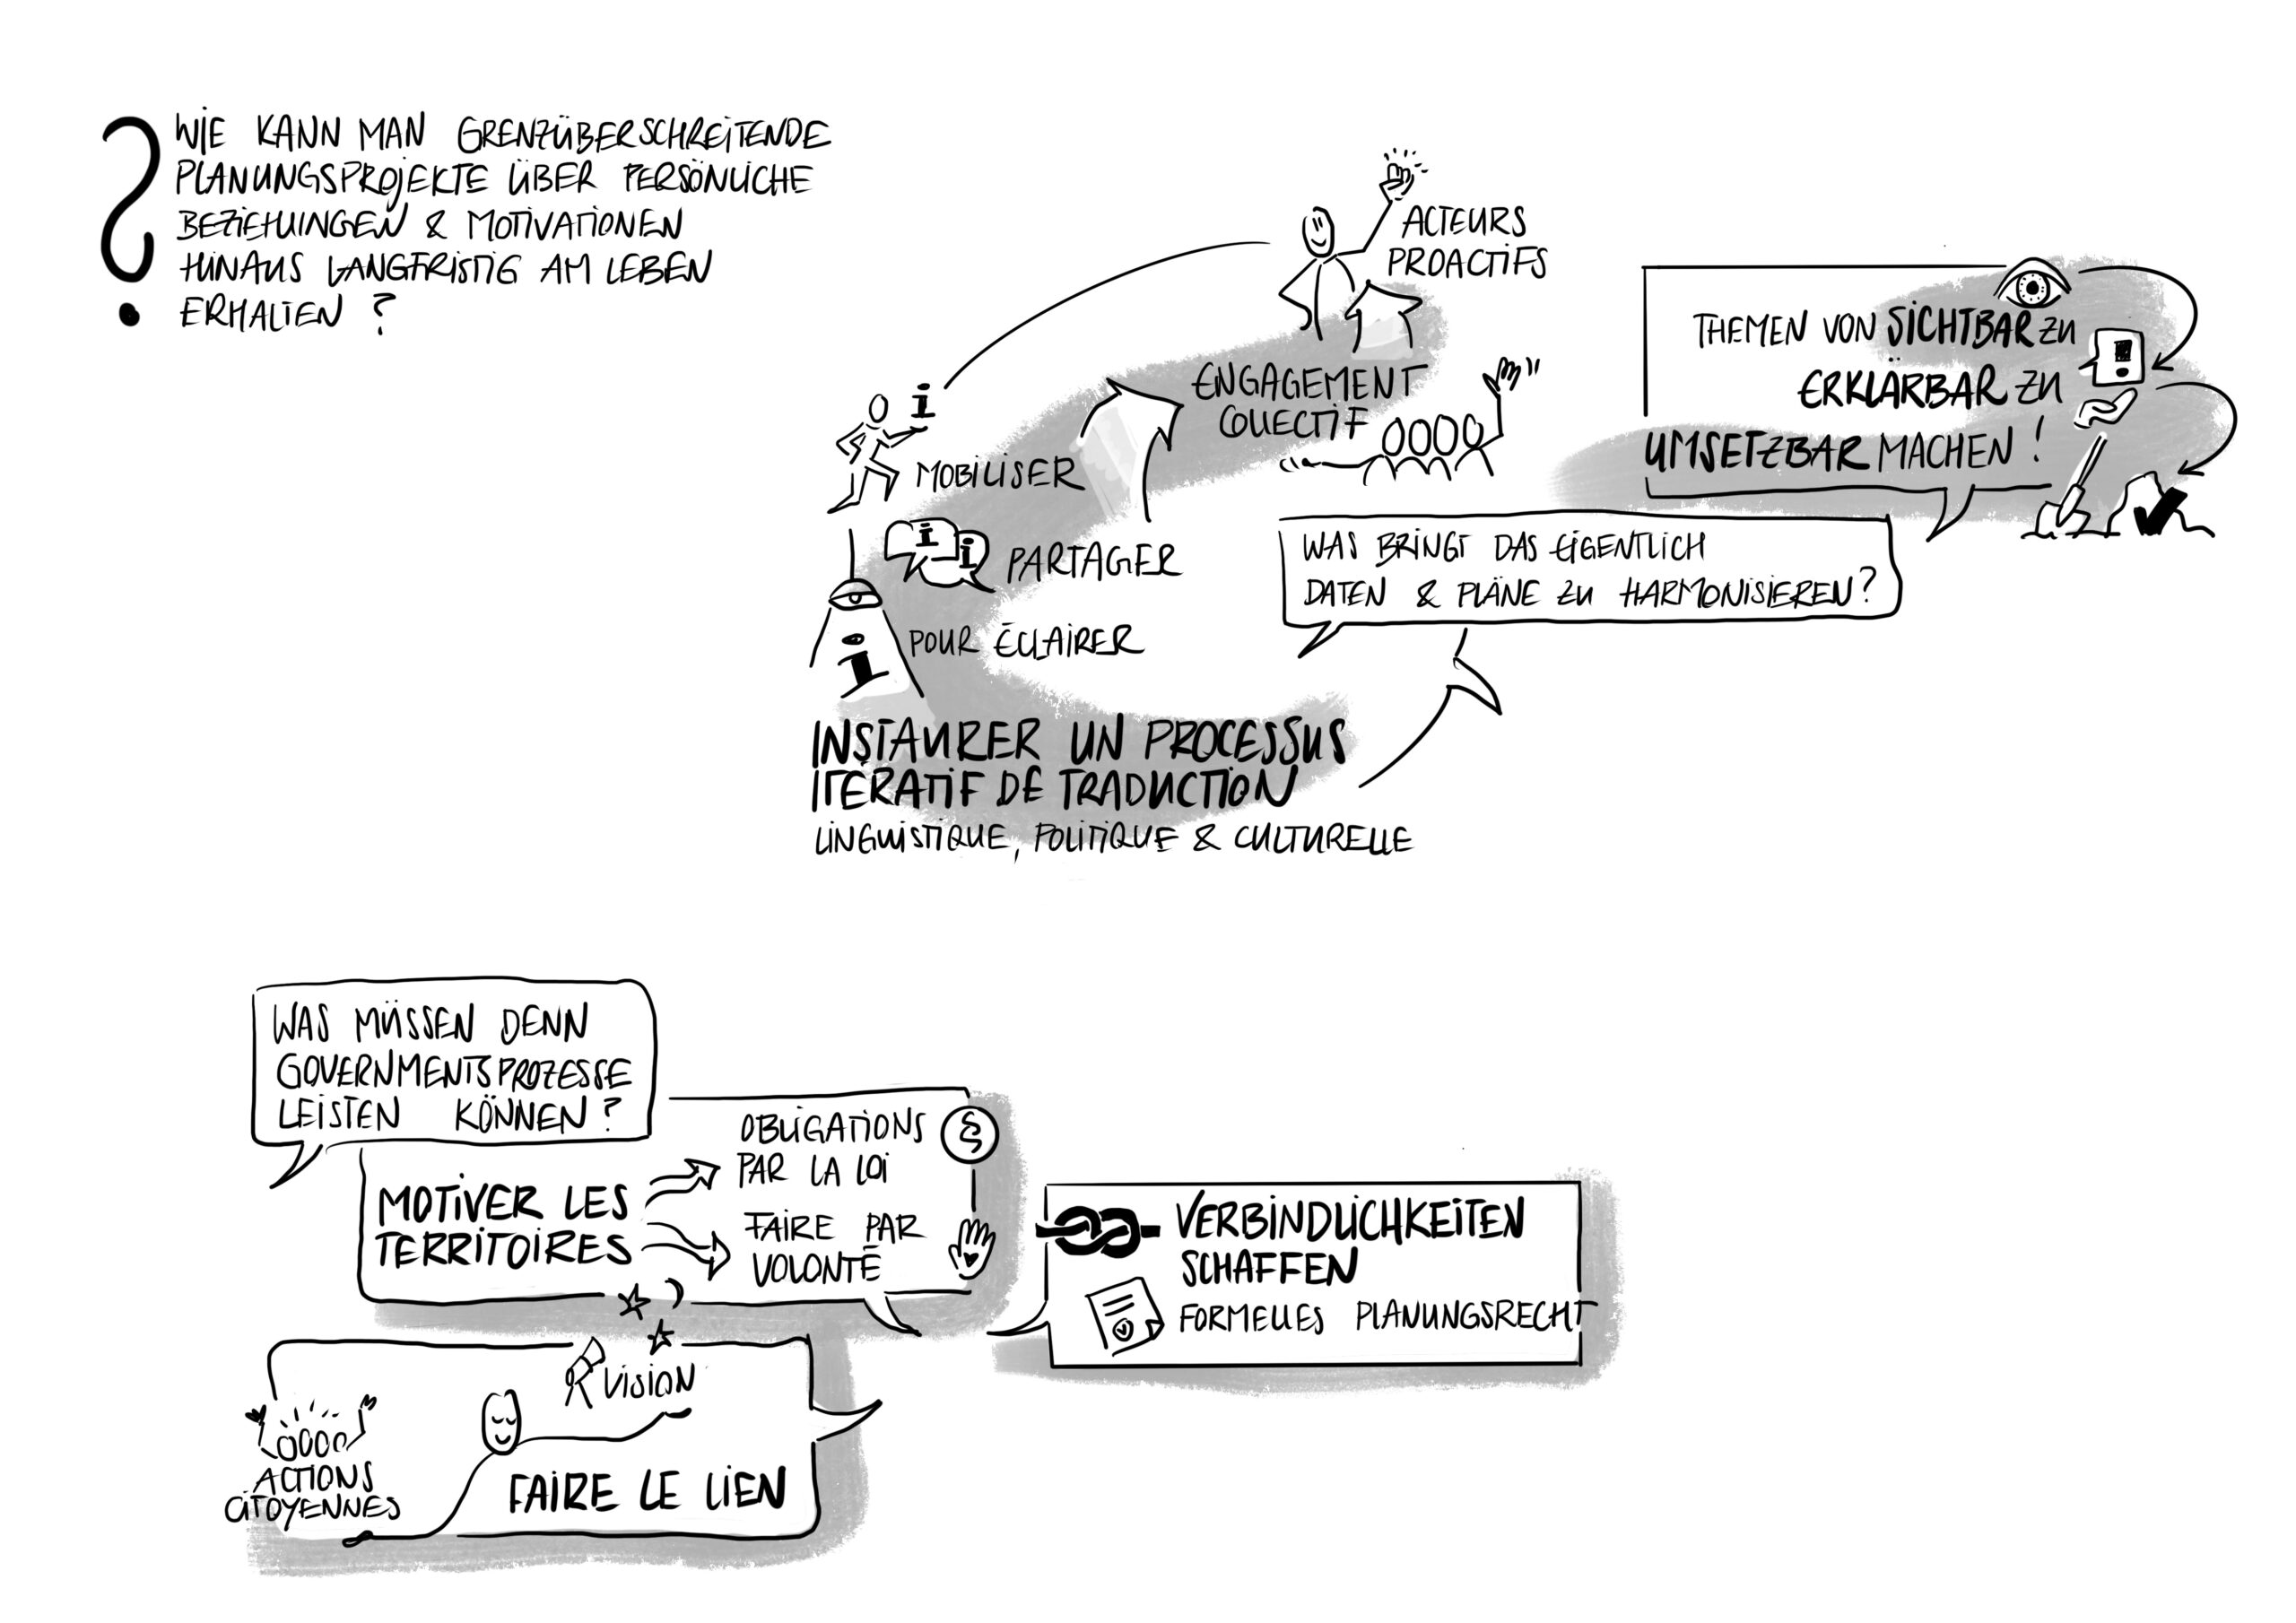 WIE KANN MAN GRENZÜBERSCHREITENDE
PLANUNGSPROJEKTE ÜBER PERSÖNLICHE
BEZIEHUNGEN & MOTIVATIONEN
HINAUS LANGFRISTIG AM LEBEN
ERHALTEN ?
ACTEURS
PROACTIFS
ENGAGEMENT
COLLECTIF
i
MOBILISER
i i
PARTAGER
i
POUR ÉCLAIRER
INSTAURER UN PROCESSUS
ITÉRATIF DE TRADUCTION
LINGUISTIQUE, POLITIQUE & CULTURELLE
THEMEN VON SICHTBAR ZU
ERKLÄRBAR ZU
UMSETZBAR MACHEN !
!
WAS BRINGT DAS EIGENTLICH
DATEN & PLÄNE ZU HARMONISIEREN?
WAS MÜSSEN DENN
GOVERNMENTSPROZESSE
LEISTEN KÖNNEN?
MOTIVER LES
TERRITOIRES
OBLIGATIONS
PAR LA LOI
§
FAIRE PAR
VOLONTÉ
VERBINDLICHKEITEN
SCHAFFEN
FORMELLES PLANUNGSRECHT
VISION
ACTIONS
CITOYENNES
FAIRE LE LIEN